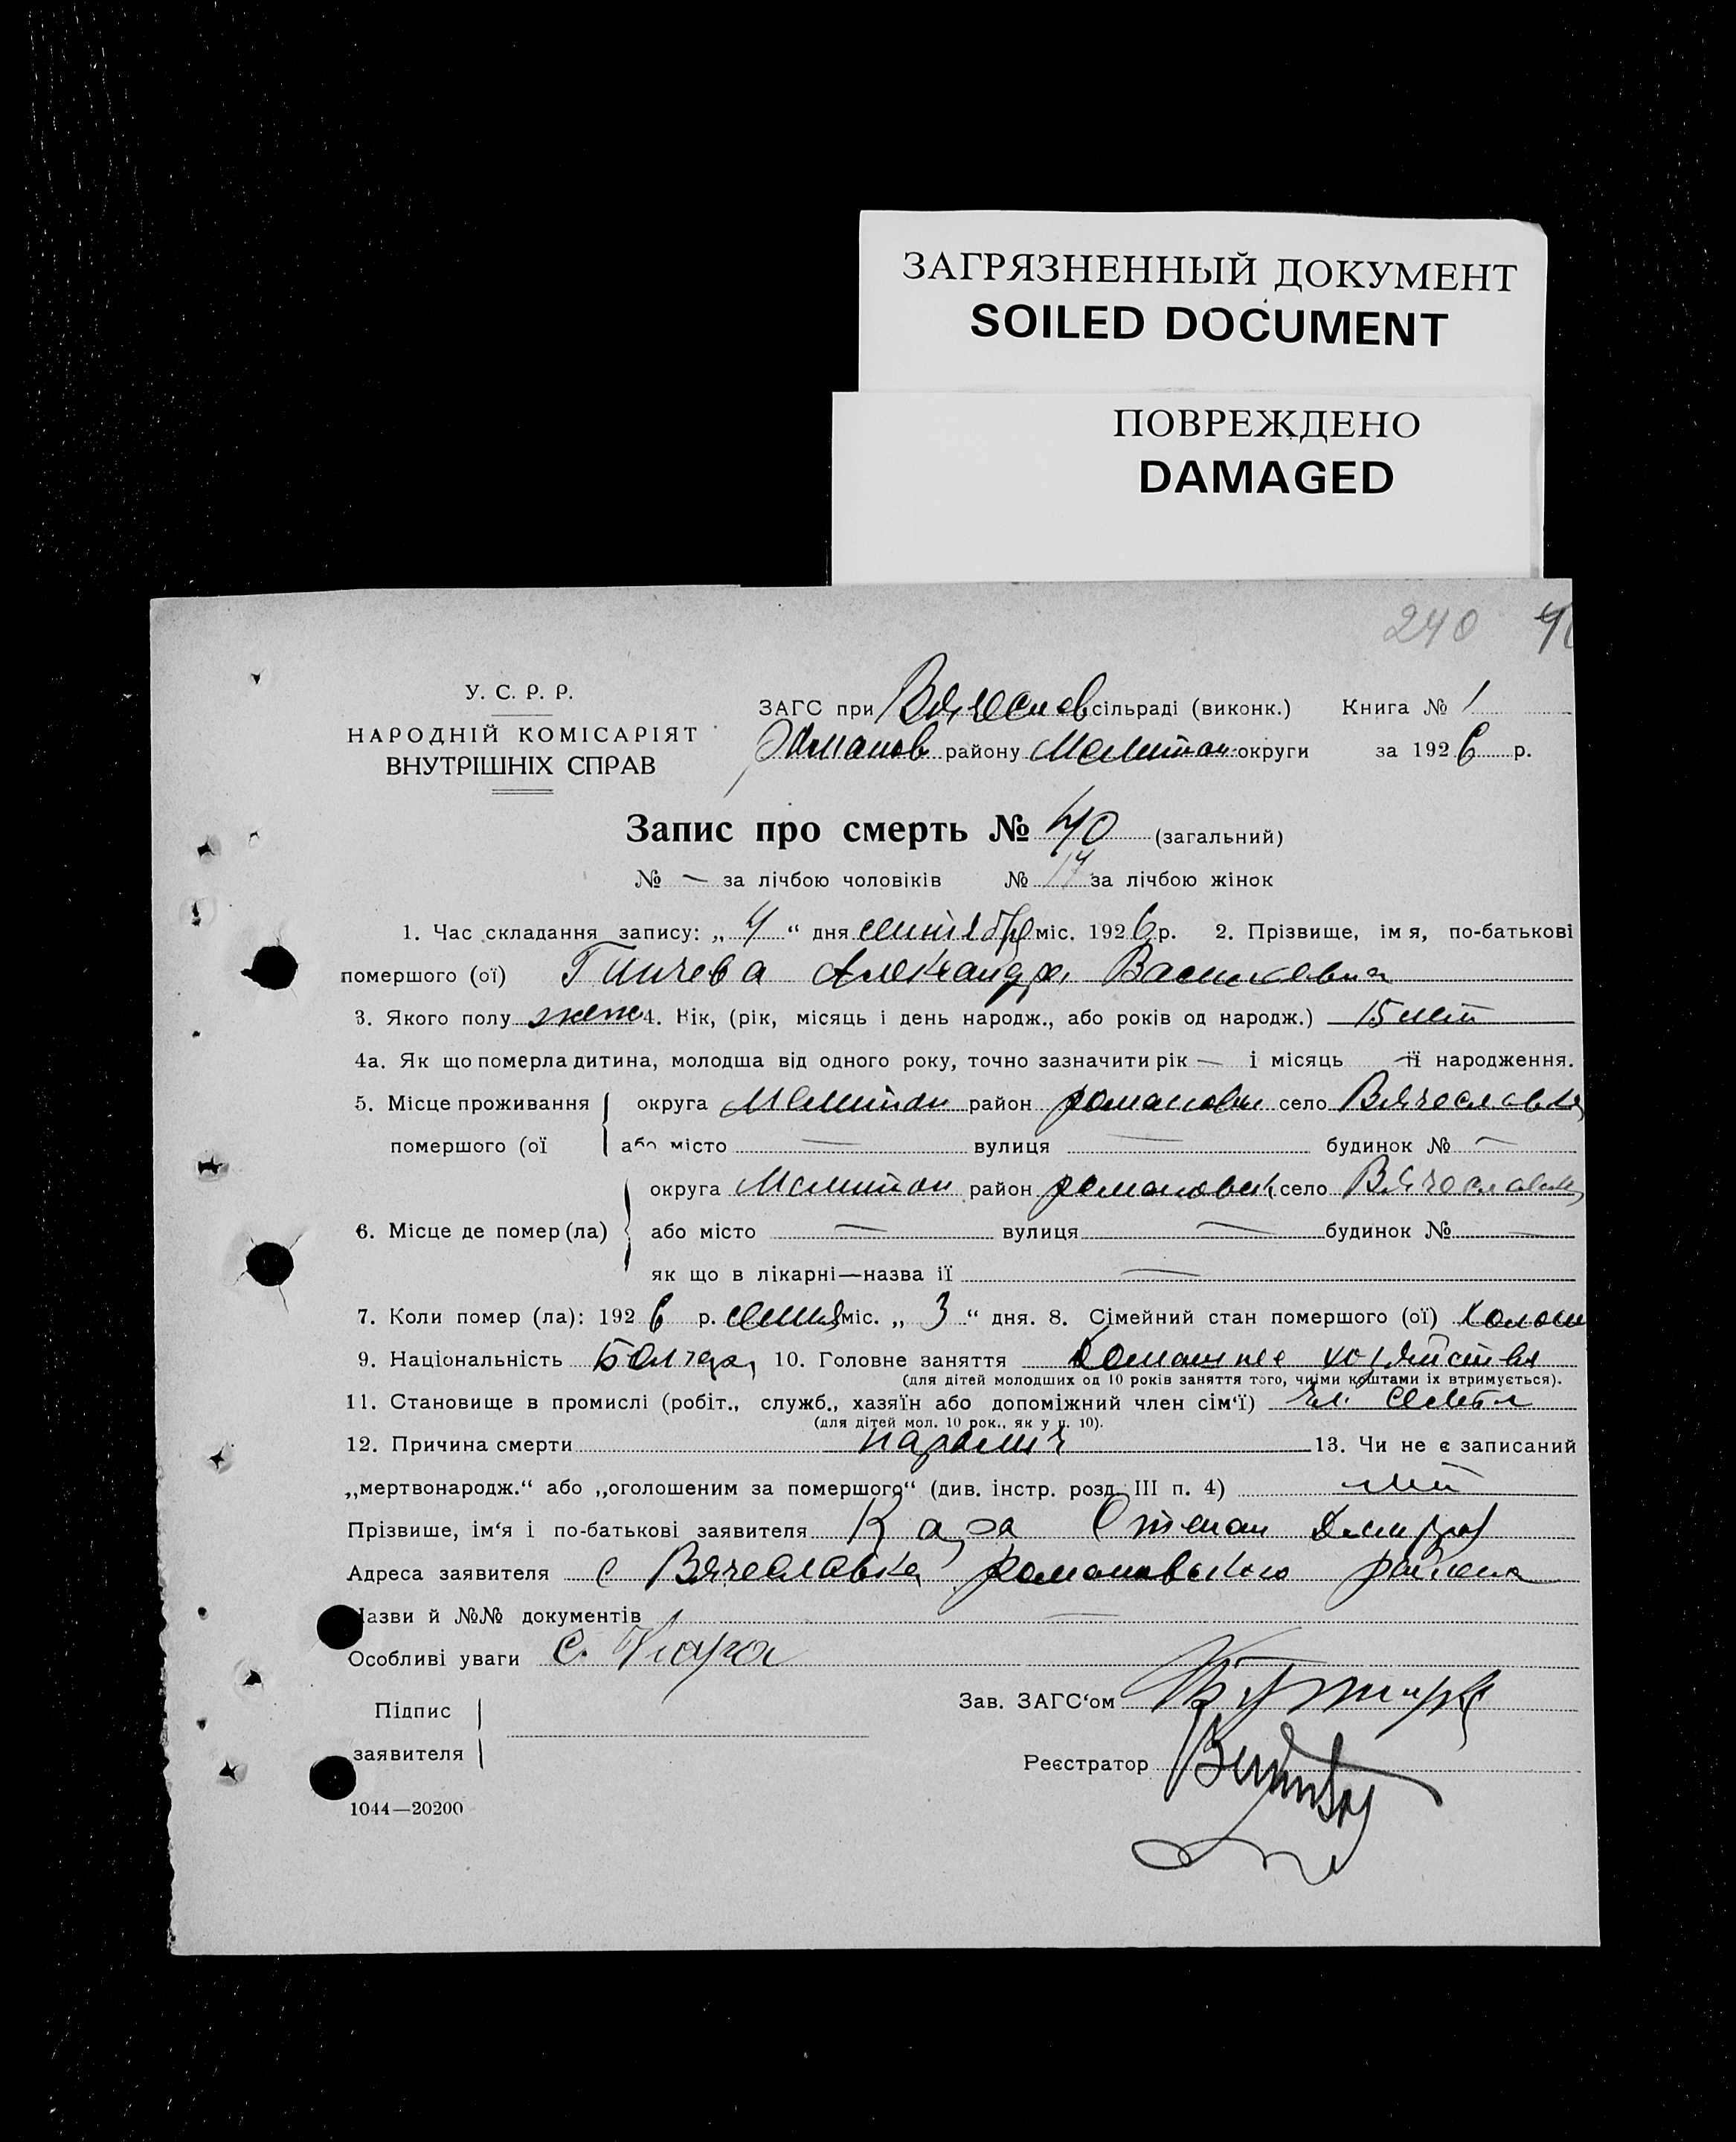 ЗАГРЯЗНЕННЫЙ ДОКУМЕНТ
SOILED DOCUMENT
ПОВРЕЖДЕНО
DAMAGED
240 40
У. С. Р. Р.
НАРОДНІЙ КОМІСАРІЯТ
ВНУТРІШНІХ СПРАВ
ЗАГС при Вячеслов сільраді (виконк.) Книга № 1
Романов району Мелитоп округи за 1926 р.
Запис про смерть № 40 (загальний)
№ — за лічбою чоловіків № 17 за лічбою жінок
1. Час складання запису: „ 4 “ дня сентября міс. 1926 р. 2. Прізвище, імя, по-батькові
помершого (ої) Гинчева Александра Васильевна
3. Якого полу женс 4. Вік, (рік, місяць і день народж., або років од народж.) 15 лет
4а. Як що померла дитина, молодша від одного року, точно зазначити рік — і місяць — її народження.
5. Місце проживання округа Мелитоп район романовск село Вячеславка
помершого (ої або місто — вулиця — будинок № —
округа Мелитоп район романовск село Вячеславка
6. Місце де помер (ла) або місто — вулиця — будинок № —
як що в лікарні—назва її —
7. Коли помер (ла): 1926 р. сентя міс. „ 3 “ дня. 8. Сімейний стан помершого (ої) холост
9. Національність Болгар 10. Головне заняття Домашнее хозяйство
(для дітей молодших од 10 років заняття того, чиїми коштами їх втримується).
11. Становище в промислі (робіт., служб., хазяїн або допоміжний член сім‘ї) чл. семьи
(для дітей мол. 10 рок., як у п. 10).
12. Причина смерти паралич 13. Чи не є записаний
„мертвонародж.“ або „оголошеним за помершого“ (див. інстр. розд. III п. 4) нет
Прізвище, ім‘я і по-батькові заявителя Кара Степан Дмитров
Адреса заявителя с Вячеславка романовского района
Назви й №№ документів —
Особливі уваги С. Кара
Підпис
заявителя
Зав. ЗАГС‘ом
Реєстратор
1044—20200